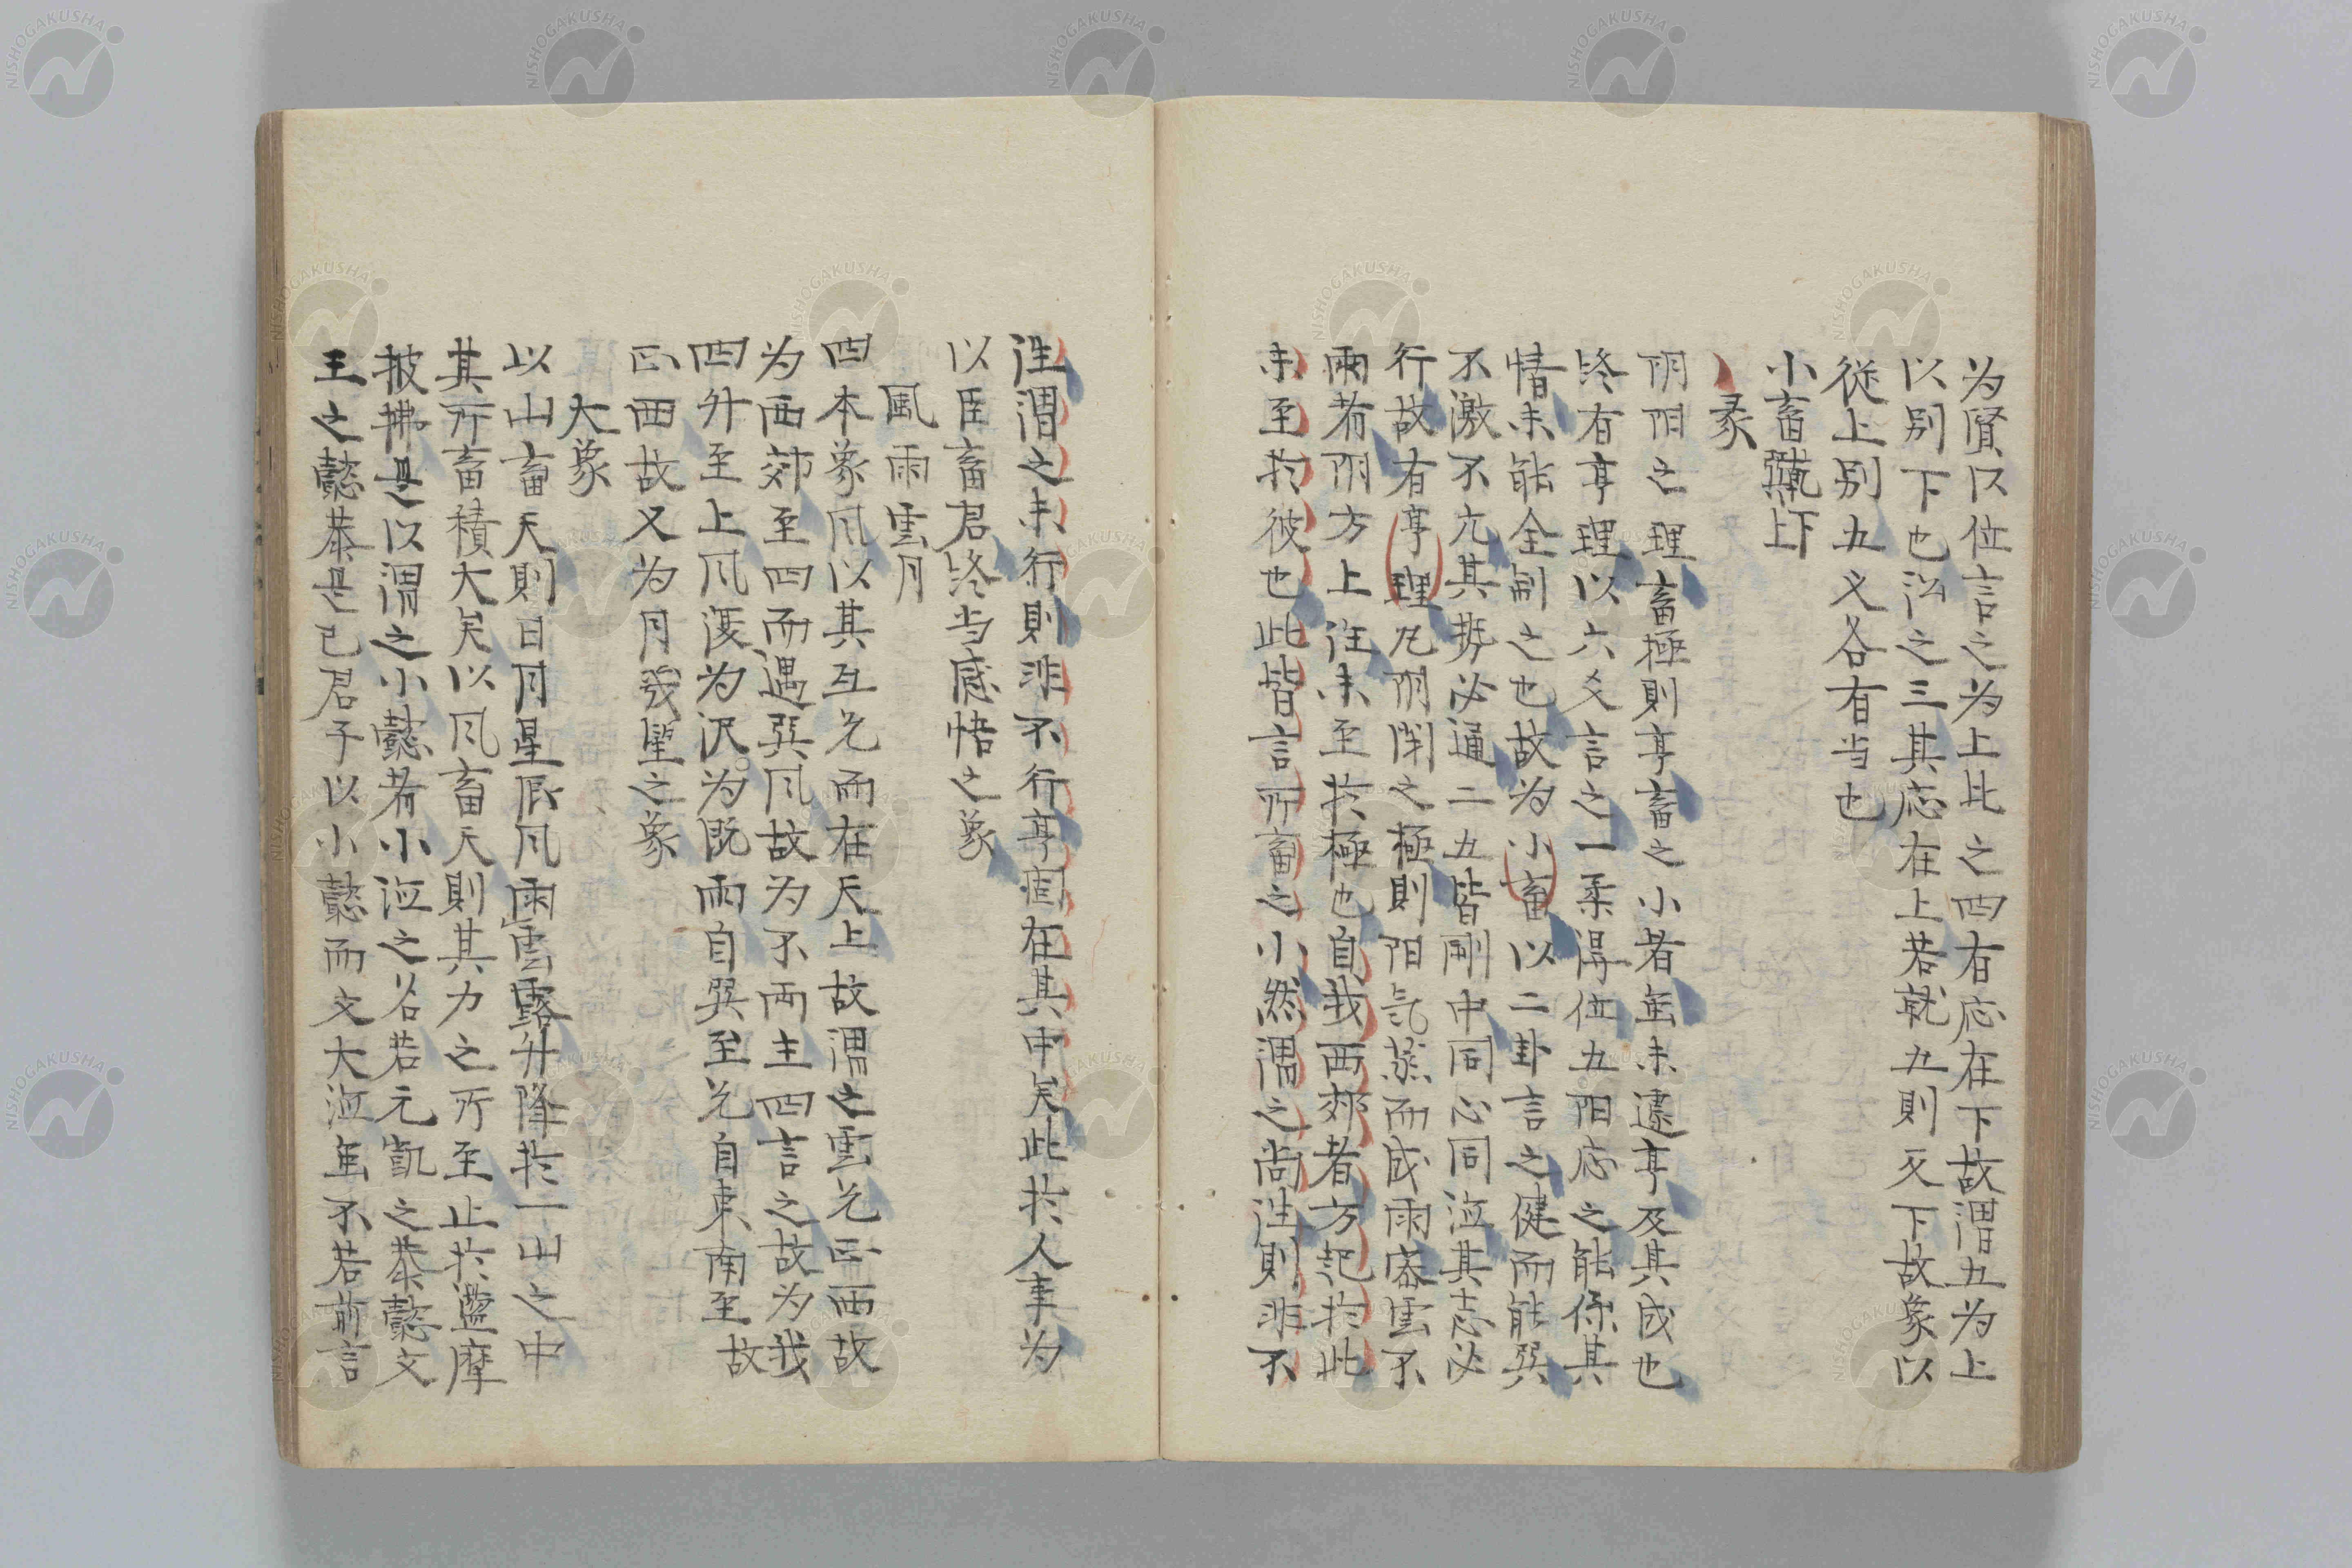 为賢以位言之为上比之四右応在下故謂五为上
以别下也泌之三其応在上若就五則又下故象以
從上别五义各有当也
小畜巽上乾下
彖
阴阳之理畜極則亨畜之小者虽未遽亨及其成也
終有亨理以六爻言之一柔得位五阳応之能係其
情未能全制之也故为小畜以二卦言之健而能巽
不激不亢其势必通二五皆剛中同心同泣其志必
行故有亨理凡阴閉之極則阳気蒸而成雨密雲不
雨者阴方上往未至於極也自我西郊者方起於此
未至於彼也此皆言所畜之小然謂之尚往則非不
往謂之未行則非不行亨固在其中矣此於人事为
以臣畜君終当感悟之象
風雨雲月
四本象风以其互兑而在天上故謂之雲兑正西故
为西郊至四而遇巽风故为不雨主四言之故为我
四升至上风復为沢为既雨自巽至兑自東南至故
正西故又为月幾望之象
大象
以山畜天則日月星辰风雨雲露升降於一山之中
其所畜積大矣以风畜天則其力之所至止於盪摩
披拂是以謂之小懿者小泣之名若元凱之恭懿文
王之懿恭是已君子以小懿而文大泣虽不若前言